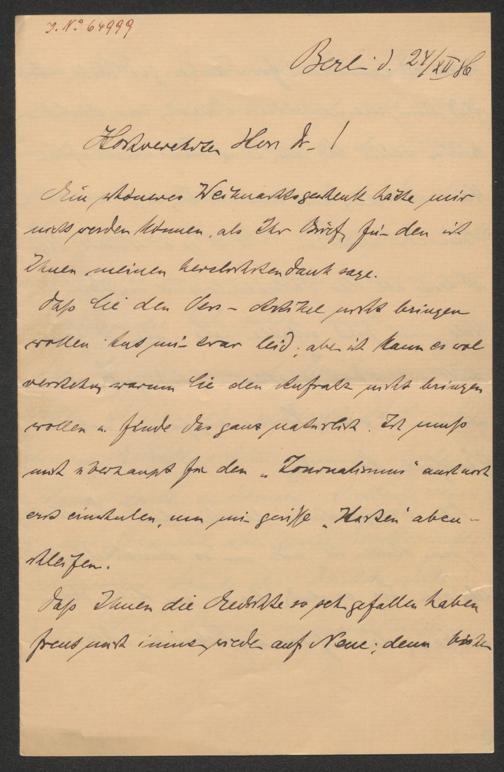 J. No 64999
Berlin d. 24/XII 86
Hochverehrter Herr Dr. !
Ein schöneres Weihnachtsgeschenk hätte mir
nicht werden können, als Ihr Brief, für den ich
Ihnen meinen herzlichsten Dank sage.
Daß Sie den Artikel nicht bringen
wollen thut mir zwar leid; aber ich kann es wol
verstehen, warum Sie den Aufsatz nicht bringen
wollen u. finde das ganz natürlich. Ich muß
mich überhaupt für den „Journalismus" auch noch
erst einschulen, um mir gewisse „Härten" abzu-
schleifen.
Daß Ihnen die Gedichte so sehr gefallen haben
freut mich immer wieder auf Neue; denn bisher